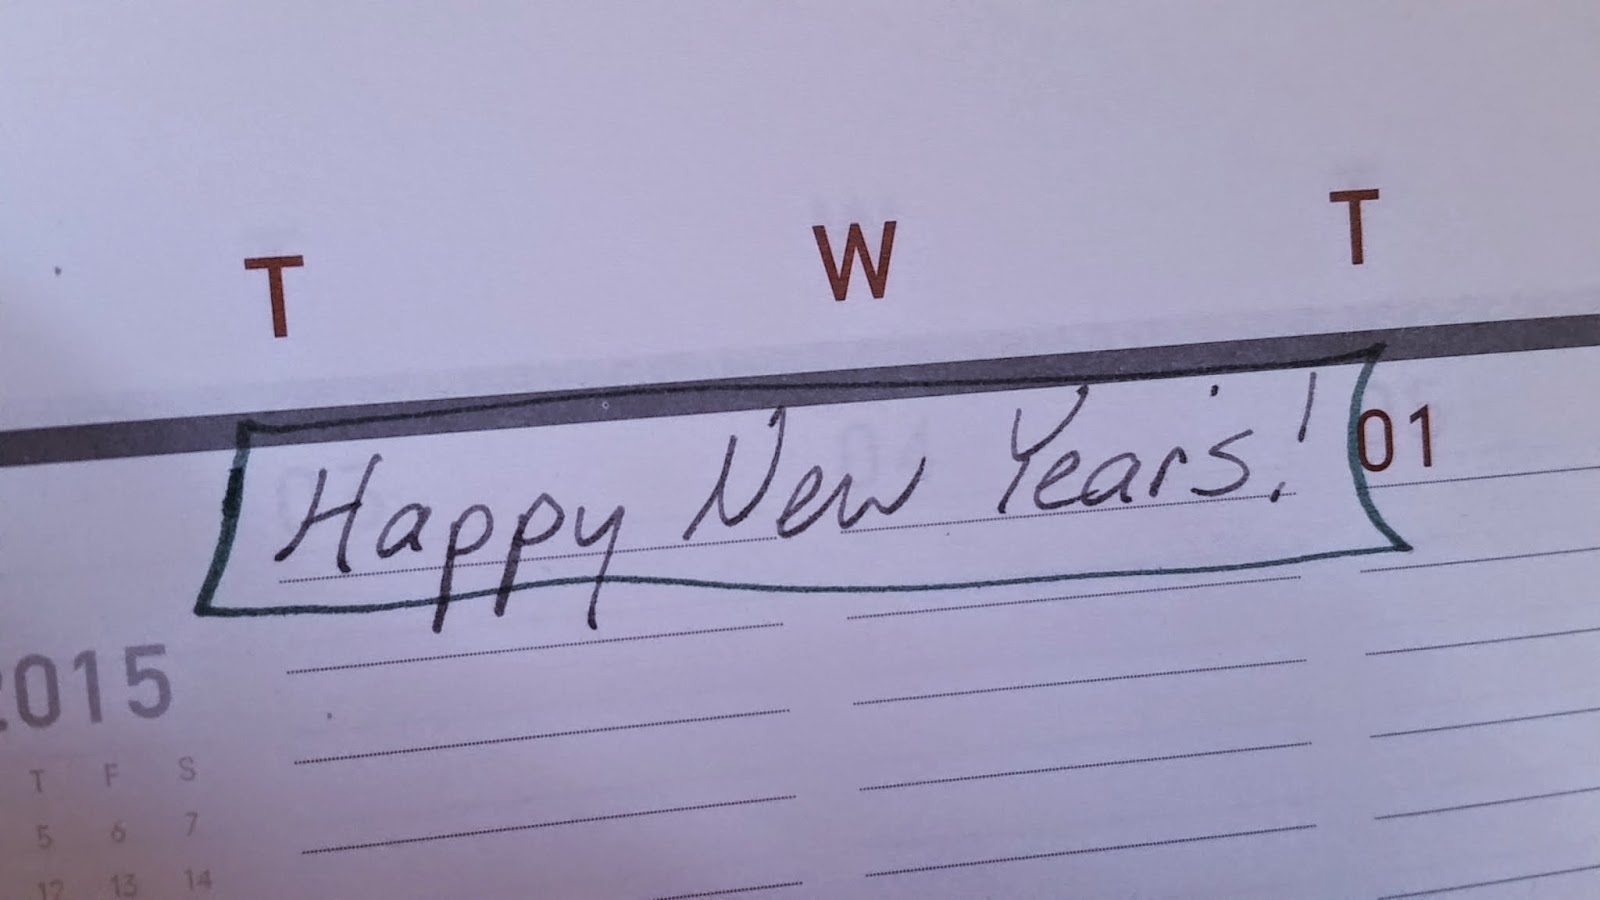 T W T
Happy New Year's!
01
2015
T F S
5 6 7
12 13 14